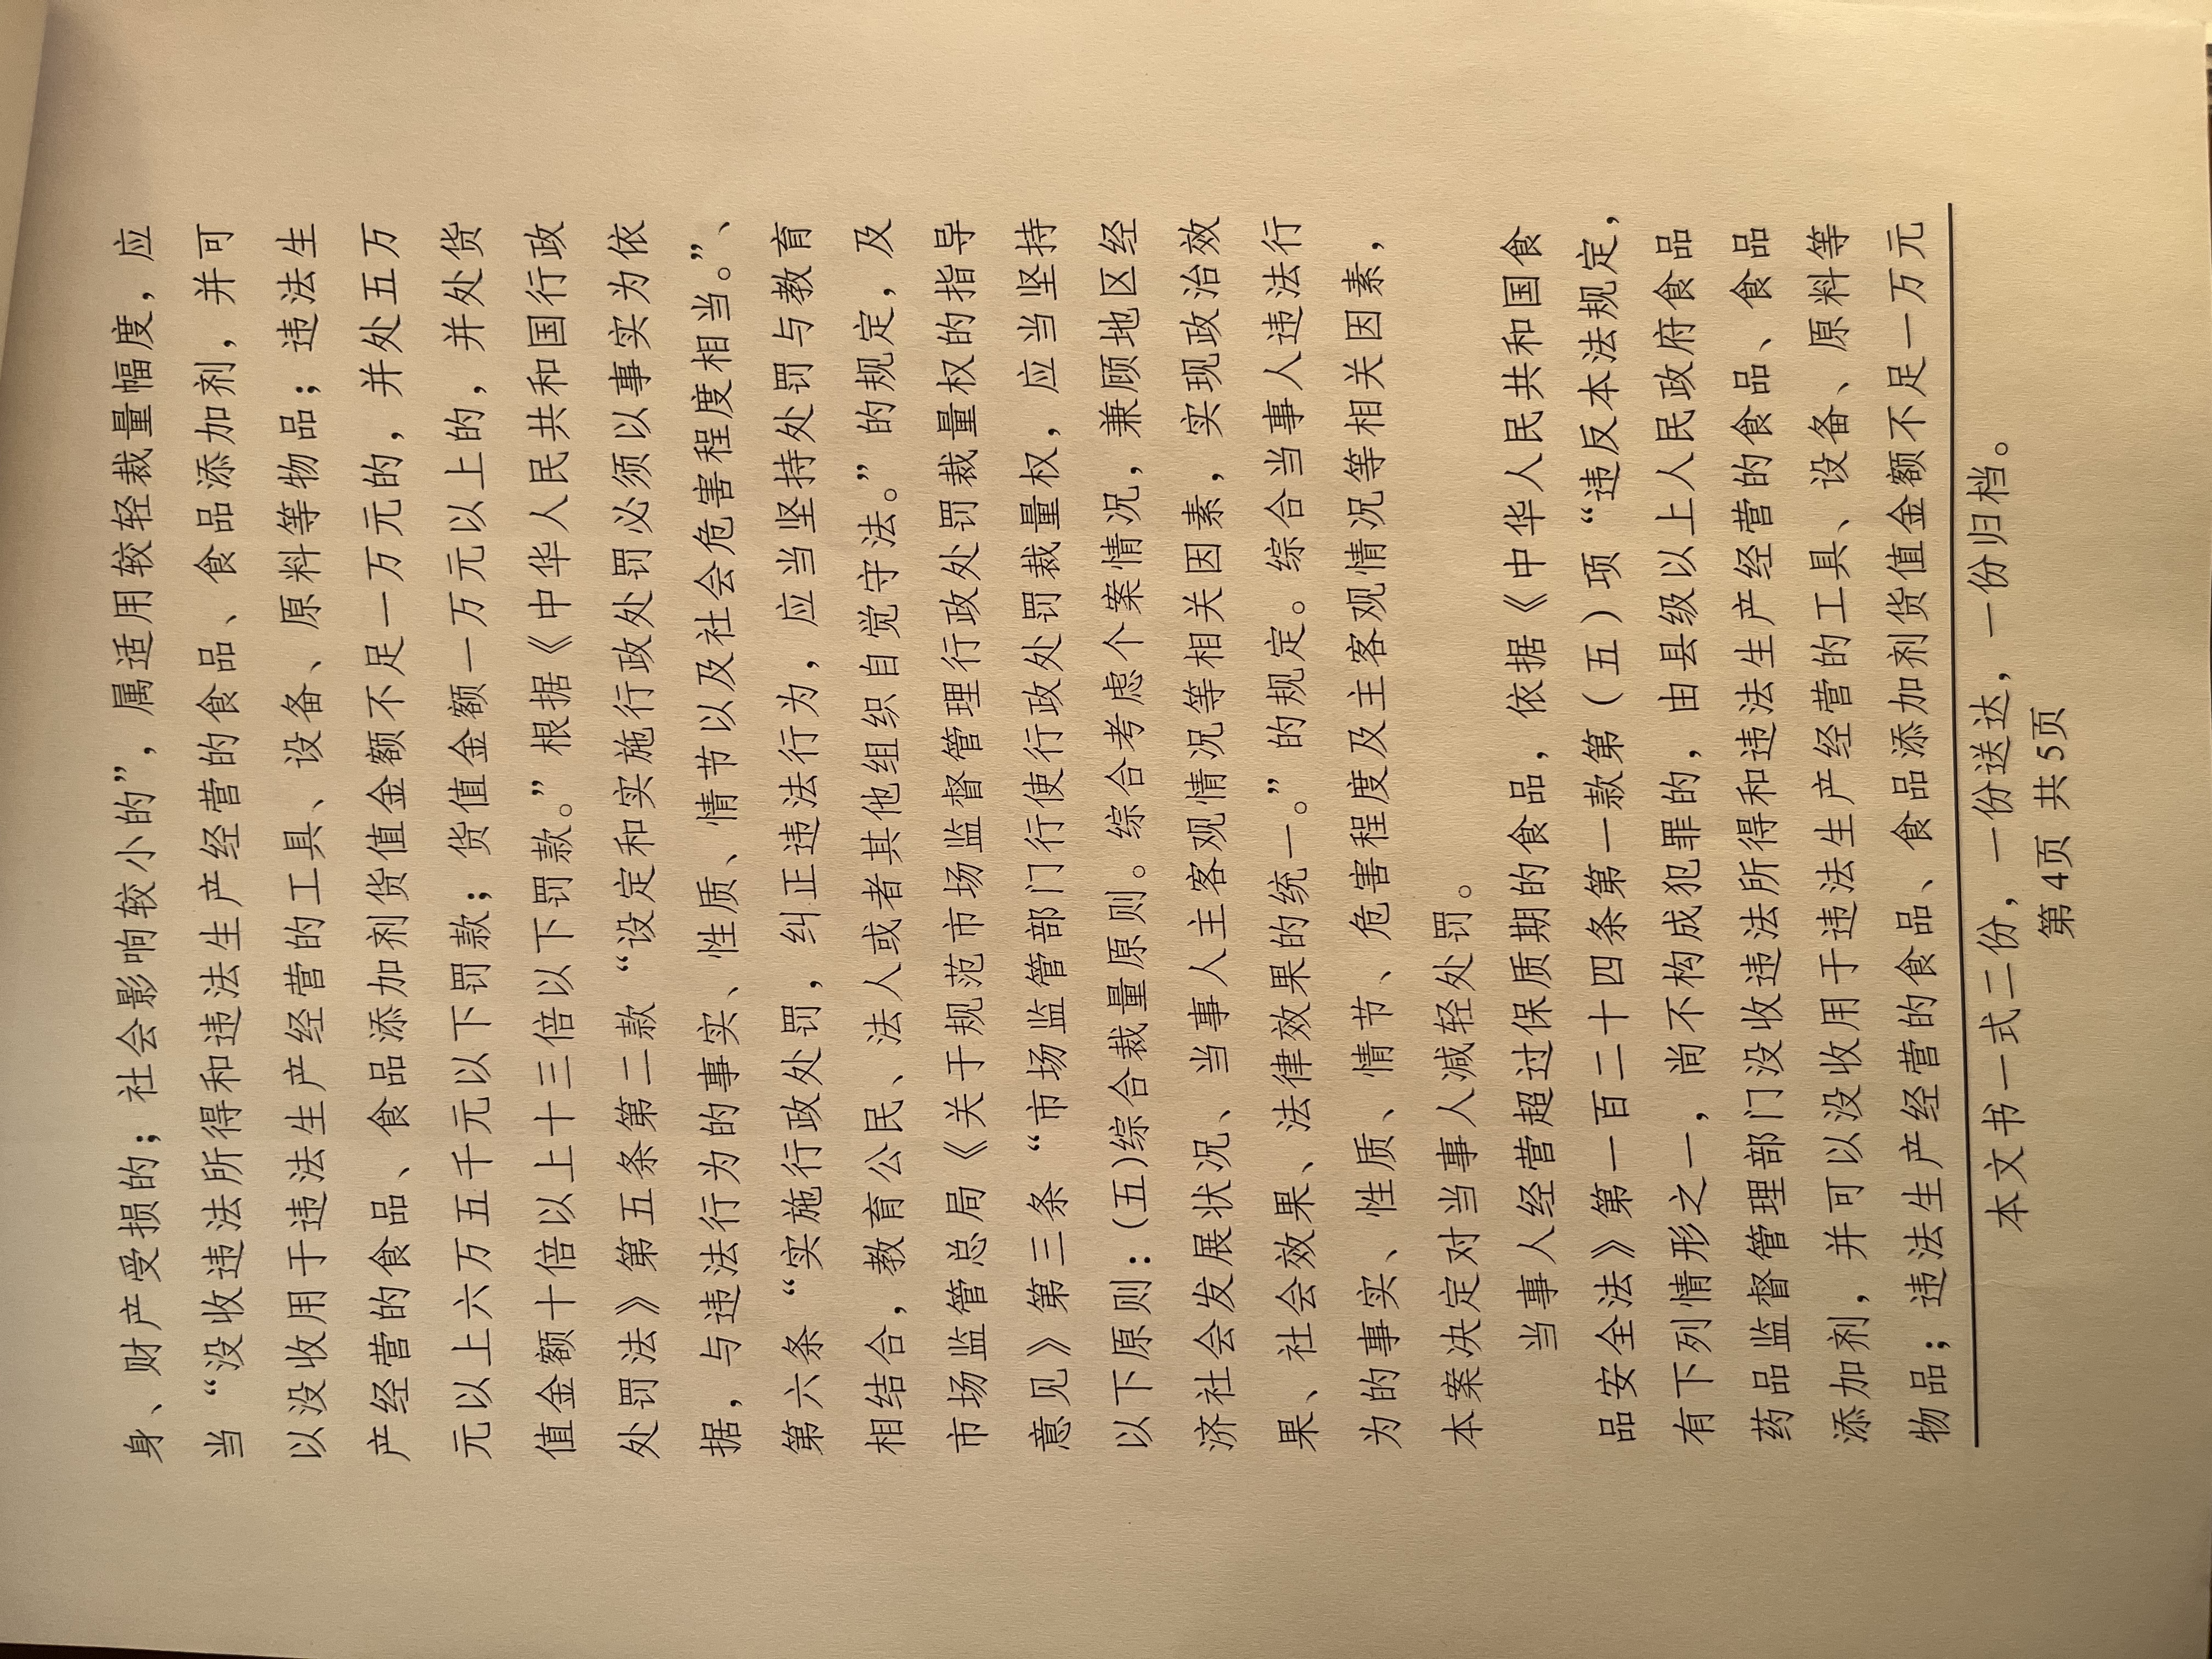 身、财产受损的；社会影响较小的”，属适用较轻裁量幅度，应
当“没收违法所得和违法生产经营的食品、食品添加剂，并可
以没收用于违法生产经营的工具、设备、原料等物品；违法生
产经营的食品、食品添加剂货值金额不足一万元的，并处五万
元以上六万五千元以下罚款；货值金额一万元以上的，并处货
值金额十倍以上十三倍以下罚款。”根据《中华人民共和国行政
处罚法》第五条第二款“设定和实施行政处罚必须以事实为依
据，与违法行为的事实、性质、情节以及社会危害程度相当。”、
第六条“实施行政处罚，纠正违法行为，应当坚持处罚与教育
相结合，教育公民、法人或者其他组织自觉守法。”的规定，及
市场监管总局《关于规范市场监督管理行政处罚裁量权的指导
意见》第三条“市场监管部门行使行政处罚裁量权，应当坚持
以下原则：(五)综合裁量原则。综合考虑个案情况，兼顾地区经
济社会发展状况、当事人主客观情况等相关因素，实现政治效
果、社会效果、法律效果的统一。”的规定。综合当事人违法行
为的事实、性质、情节、危害程度及主客观情况等相关因素，
本案决定对当事人减轻处罚。
当事人经营超过保质期的食品，依据《中华人民共和国食
品安全法》第一百二十四条第一款第（五）项“违反本法规定，
有下列情形之一，尚不构成犯罪的，由县级以上人民政府食品
药品监督管理部门没收违法所得和违法生产经营的食品、食品
添加剂，并可以没收用于违法生产经营的工具、设备、原料等
物品；违法生产经营的食品、食品添加剂货值金额不足一万元
本文书一式二份，一份送达，一份归档。
第4页 共5页